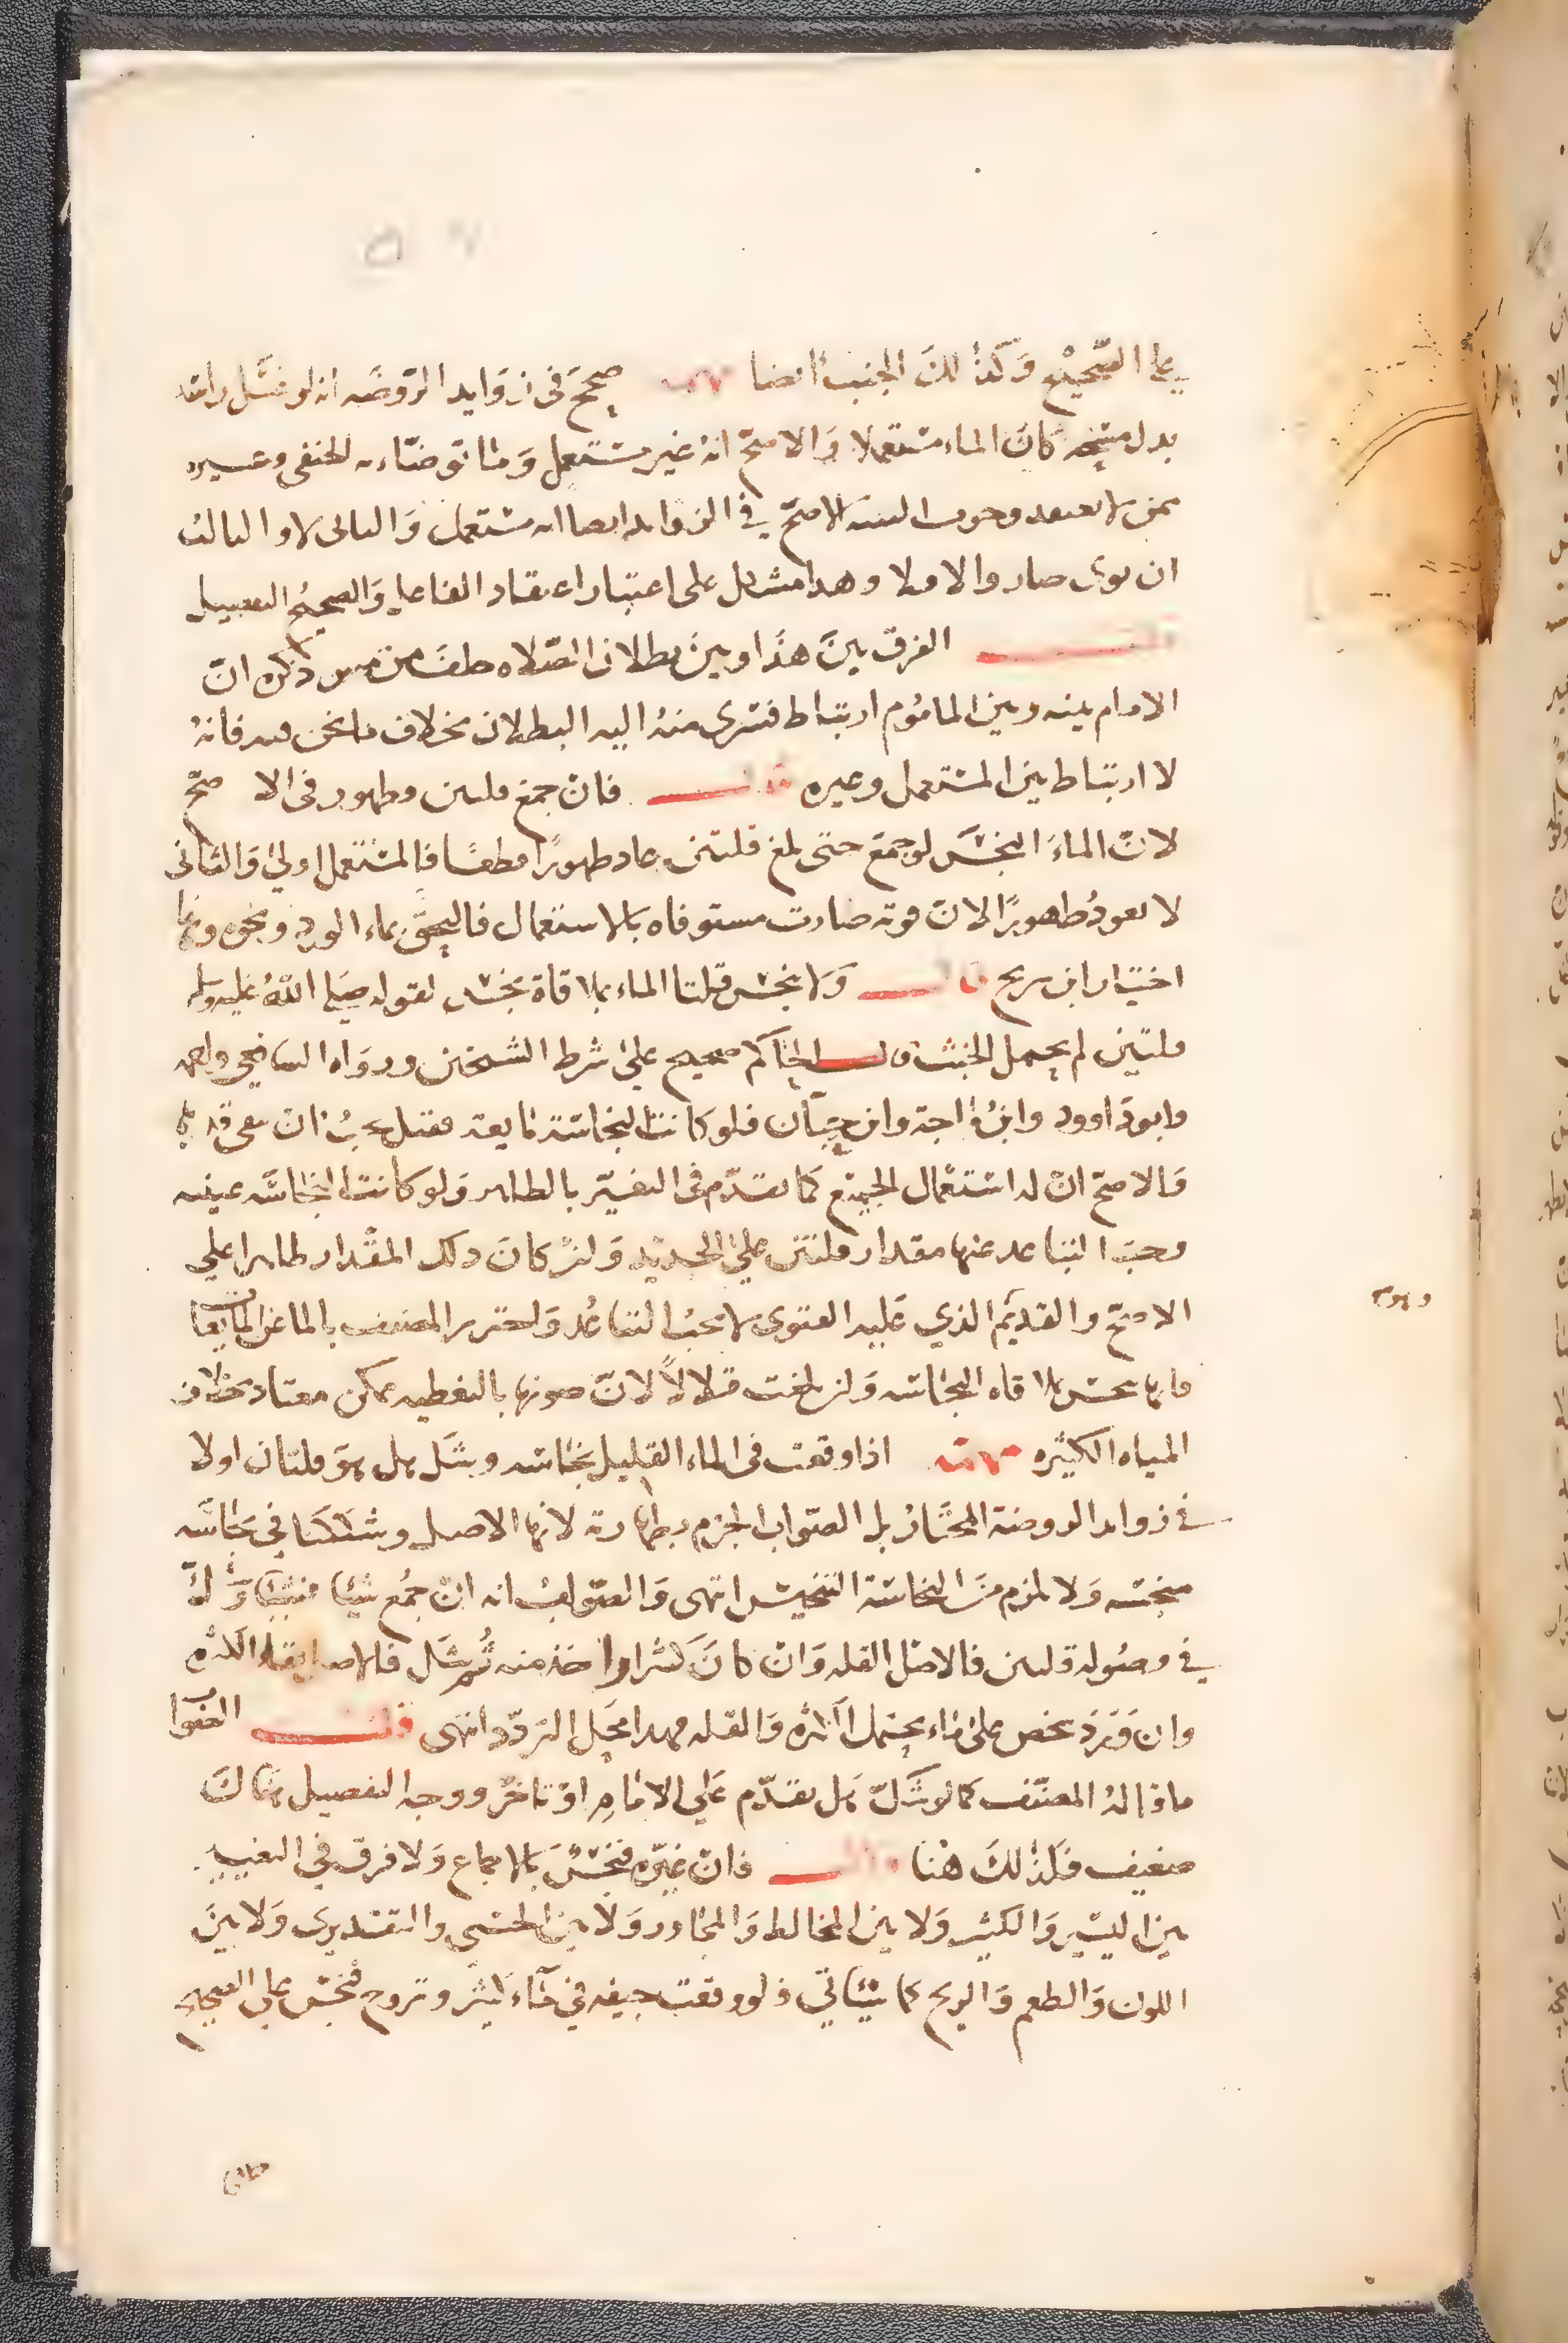 على الصحيح وكذلك الجنب أيضا صحح في زوايد الروضه انه لو غسل راسه
بدل مسحه كان الماء مستعملا والاصح انه غير مستعمل وما توضأ به الحنفي وغيره
ممن لا يعتقد وجوب النيه الاصح في الزوايد ايضا انه مستعمل والثاني لا والثالث
ان نوى صار والا فلا وهذا مشكل على اعتبار اعتقاد الفاعل والصحيح التفصيل
الفرق بين هذا وبين بطلان الصلاه خلف من مس ذكره ان
الامام بينه وبين الماموم ارتباط فسرى منه اليه البطلان بخلاف ما نحن فيه فانه
لا ارتباط بين المستعمل وغيره قال فان جمع قلتين وطهور في الا صح
لان الماء النجس لو جمع حتى بلغ قلتين عاد طهورا قطعا فالمستعمل اولى والثاني
لا يعود طهورا لان قوته صارت مستوفاه بالاستعمال فالتحق بماء الورد ونحوه وهذا
اختيار ابن سريج قال ولا ينجس قلتا الماء بملاقاة نجس لقوله صلى الله عليه وسلم
قلتين لم يحمل الخبث قال الحاكم صحيح على شرط الشيخين ورواه الشافعي واحمد
وابو داوود وابن ماجة وابن حبان فلو كانت النجاسة مايعة فقيل يجب ان يبقى قدرها
والاصح ان له استعمال الجميع كما تقدم في التغير بالطاهر ولو كانت النجاسه عينيه
وجب التباعد عنها مقدار قلتين على الجديد وان كان ذلك المقدار طاهرا على
الاصح والقديم الذي عليه الفتوى لا يجب التباعد واحترز المصنف بالما عن المايعات
فانها تنجس بملاقاه النجاسه وان بلغت قلالا لان صونها بالتغطيه ممكن معتاد بخلاف
المياه الكثيره اذا وقعت في الماء القليل نجاسه وشك هل هو قلتان اولا
في زوايد الروضة المختار بل الصواب الجزم بطهارته لانها الاصل وشككنا في نجاسه
منجسه ولا يلزم من النجاسة التنجيس انتهى والصواب انه ان جمع شيئا فشيئا وشك
في وصوله قلتين فالاصل القله وان كان كثيرا واخذ منه ثم شك فالاصل بقاء الكثره
وان ورد شخص على ماء يحتمل الكثره والقله فهذا محل التردد انتهى قلت الصواب
ما قاله المصنف كما لو شك هل تقدم على الامام او تاخر ووجه التفصيل هناك
ضعيف فكذلك هنا قال فان غيره فنجس بالاجماع ولا فرق في التغيير
بين اليسير والكثير ولا بين المخالط والمجاور ولا بين الحسي والتقديري ولا بين
اللون والطعم والريح كما سياتي ولو وقعت جيفه في ماء كثير وتروح فنجس على الصحيح